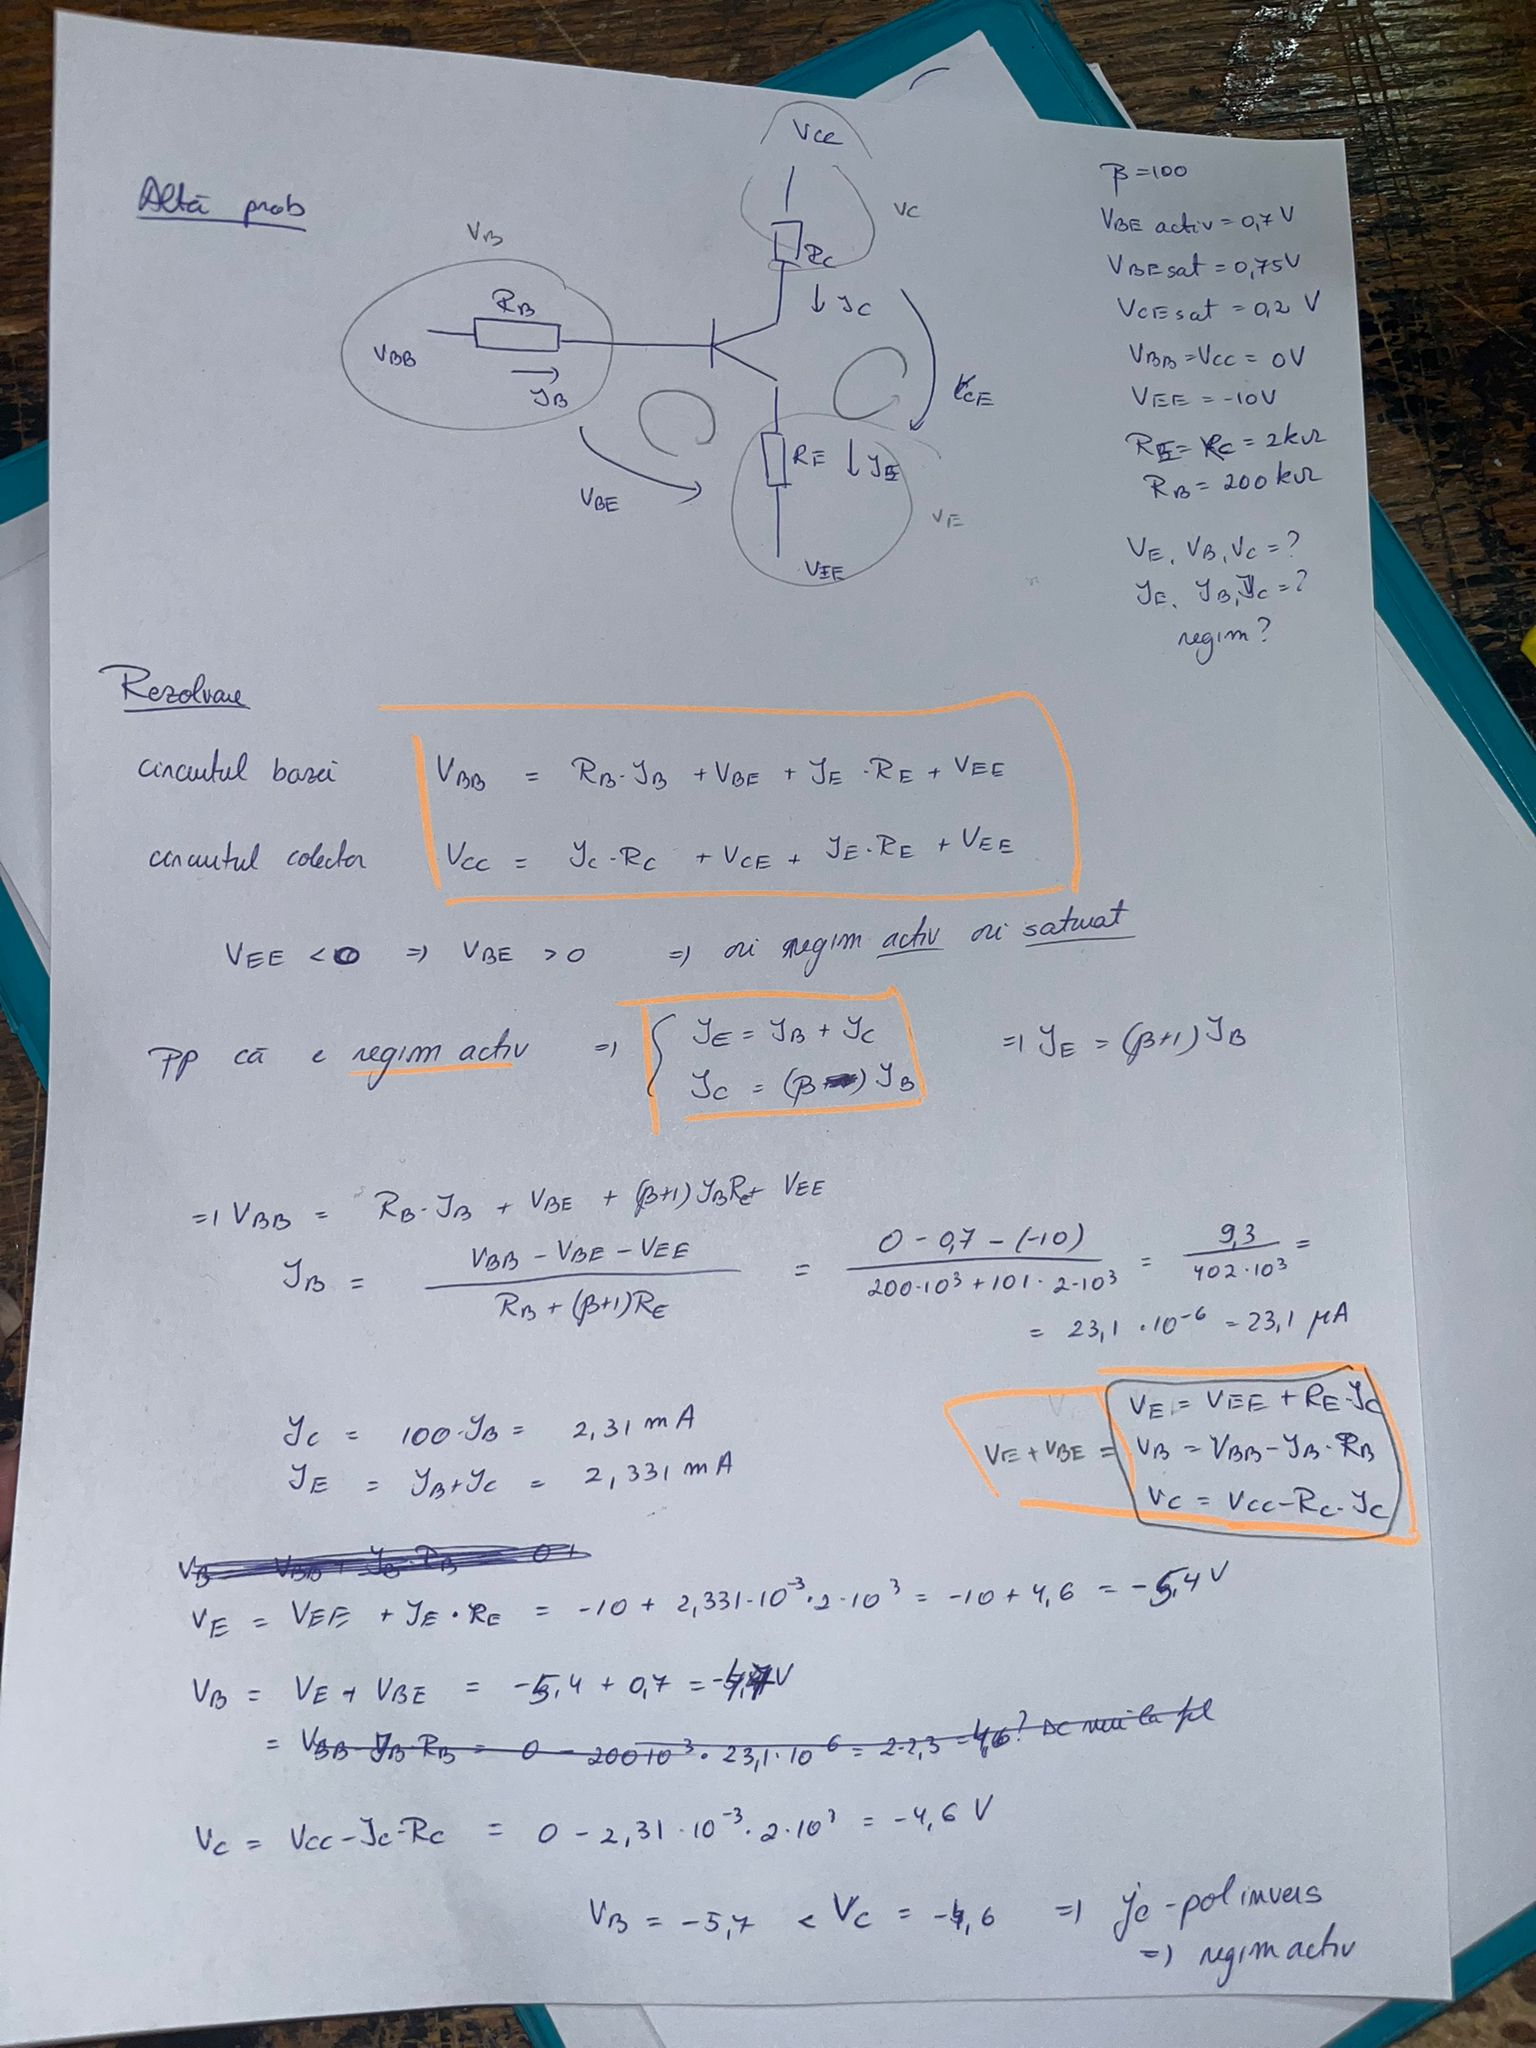 Altă prob
VCC
VC
RC
↓ IC
VB
RB
VBB
→
IB
VCE
VBE
RE ↓ IE
VE
VEE
β = 100
VBE activ = 0,7 V
VBE sat = 0,75V
VCE sat = 0,2 V
VBB = VCC = 0V
VEE = -10V
RE = RC = 2kΩ
RB = 200 kΩ
VE, VB, VC = ?
IE, IB, IC = ?
regim?
Rezolvare
circuitul bazei VBB = RB · IB + VBE + IE · RE + VEE
circuitul colector VCC = IC · RC + VCE + IE · RE + VEE
VEE < 0 => VBE > 0 => ori regim activ ori saturat
pp că e regim activ => { IE = IB + IC => IE = (β+1) IB
IC = (β) IB
=> VBB = RB · IB + VBE + (β+1) IB RE + VEE
IB = (VBB - VBE - VEE) / (RB + (β+1)RE) = (0 - 0,7 - (-10)) / (200·10³ + 101 · 2·10³) = 9,3 / (402·10³) =
= 23,1 · 10⁻⁶ = 23,1 μA
IC = 100 · IB = 2,31 mA
IE = IB + IC = 2,331 mA
VE = VEE + RE · IC
VE + VBE = VB = VBB - IB · RB
VC = VCC - RC · IC
VB = VBB + IB · RB = 0 +
VE = VEE + IE · RE = -10 + 2,331·10⁻³ · 2·10³ = -10 + 4,6 = -5,4 V
VB = VE + VBE = -5,4 + 0,7 = V
= VBB - IB · RB = 0 - 200 10³ · 23,1 · 10⁻⁶ = 2·2,3 = 4,6 ?
VC = VCC - IC · RC = 0 - 2,31 · 10⁻³ · 2·10³ = -4,6 V
VB = -5,7 < VC = -4,6 => jc - pol invers
=> regim activ